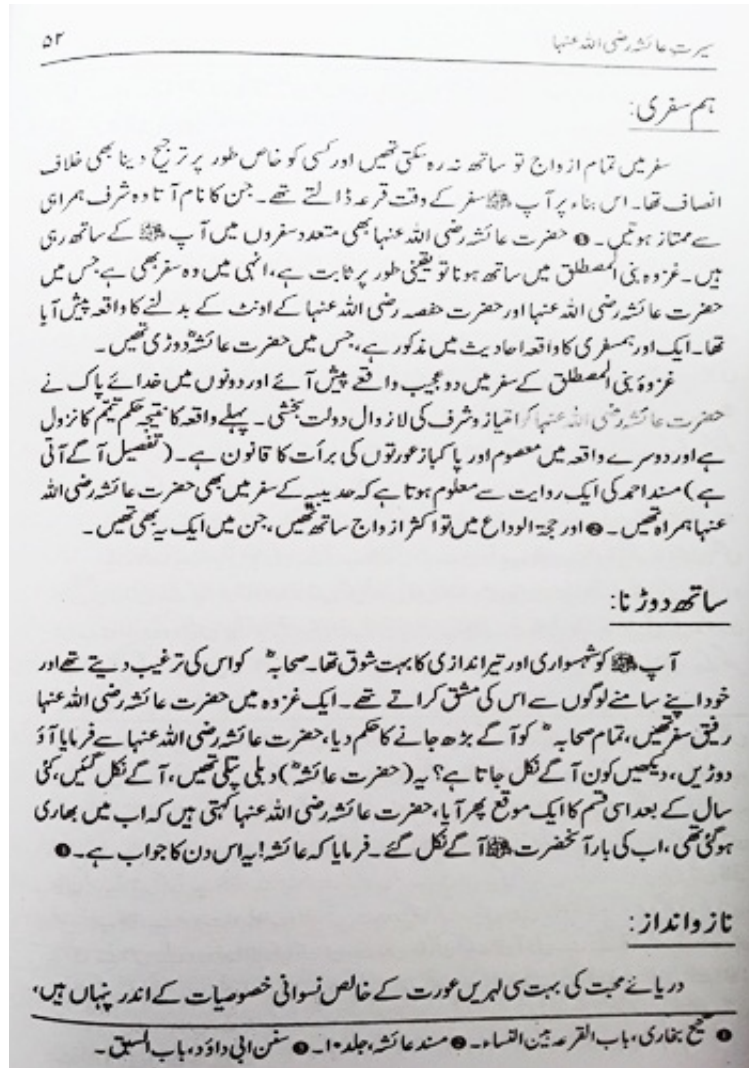 سیرتِ عائشہ رضی اللہ عنہا ۵۲
ہم سفری:
سفر میں تمام ازواج تو ساتھ نہ رہ سکتی تھیں اور کسی کو خاص طور پر ترجیح دینا بھی خلاف
انصاف تھا۔ اس بناء پر آپ ﷺ سفر کے وقت قرعہ ڈالتے تھے۔ جن کا نام آتا وہ شرف ہمراہی
سے ممتاز ہوتیں۔ ❶ حضرت عائشہ رضی اللہ عنہا بھی متعدد سفروں میں آپ ﷺ کے ساتھ رہی
ہیں۔ غزوہ بنی المصطلق میں ساتھ ہونا تو یقینی طور پر ثابت ہے، انہی میں وہ سفر بھی ہے جس میں
حضرت عائشہ رضی اللہ عنہا اور حضرت حفصہ رضی اللہ عنہا کے اونٹ کے بدلنے کا واقعہ پیش آیا
تھا۔ ایک اور ہمسفری کا واقعہ احادیث میں مذکور ہے، جس میں حضرت عائشہؓ دوڑی تھیں۔
غزوۂ بنی المصطلق کے سفر میں دو عجیب واقعے پیش آئے اور دونوں میں خدائے پاک نے
حضرت عائشہ رضی اللہ عنہا کو امتیاز و شرف کی لازوال دولت بخشی۔ پہلے واقعہ کا نتیجہ حکم تیمّم کا نزول
ہے اور دوسرے واقعہ میں معصوم اور پاکباز عورتوں کی برأت کا قانون ہے۔ (تفصیل آگے آتی
ہے) مسند احمد کی ایک روایت سے معلوم ہوتا ہے کہ حدیبیہ کے سفر میں بھی حضرت عائشہ رضی اللہ
عنہا ہمراہ تھیں۔ ❷ اور حجۃ الوداع میں تو اکثر ازواج ساتھ تھیں، جن میں ایک یہ بھی تھیں۔
ساتھ دوڑنا:
آپ ﷺ کو شہسواری اور تیر اندازی کا بہت شوق تھا۔ صحابہؓ کو اس کی ترغیب دیتے تھے اور
خود اپنے سامنے لوگوں سے اس کی مشق کراتے تھے۔ ایک غزوہ میں حضرت عائشہ رضی اللہ عنہا
رفیق سفر تھیں، تمام صحابہؓ کو آگے بڑھ جانے کا حکم دیا، حضرت عائشہ رضی اللہ عنہا سے فرمایا آؤ
دوڑیں، دیکھیں کون آگے نکل جاتا ہے؟ یہ (حضرت عائشہؓ) دبلی پتلی تھیں، آگے نکل گئیں، کئی
سال کے بعد اسی قسم کا ایک موقع پھر آیا، حضرت عائشہ رضی اللہ عنہا کہتی ہیں کہ اب میں بھاری
ہوگئی تھی، اب کی بار آنحضرت ﷺ آگے نکل گئے۔ فرمایا کہ عائشہ! یہ اس دن کا جواب ہے۔ ❸
ناز و انداز:
دریائے محبت کی بہت سی لہریں عورت کے خالص نسوانی خصوصیات کے اندر پنہاں ہیں،
❶ صحیح بخاری، باب القرعہ بین النساء۔ ❷ مسند عائشہ، جلد ۱۰۔ ❸ سنن ابی داؤد، باب السبق۔